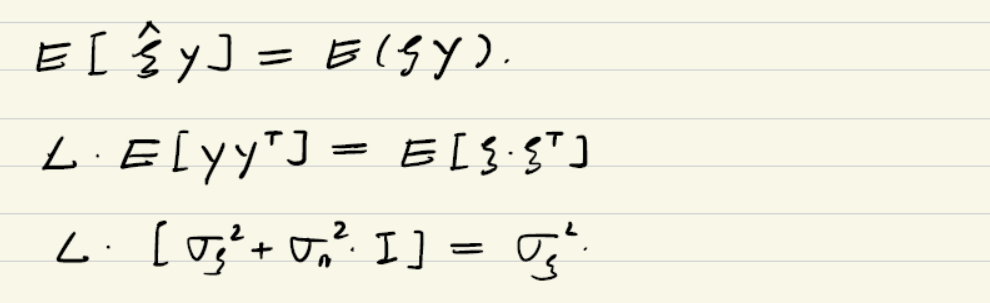 E[ξ̂y] = E(ξY).
L · E[yyᵀ] = E[ξ·ξᵀ]
L · [σ_ξ² + σ_n² · I] = σ_ξ² .